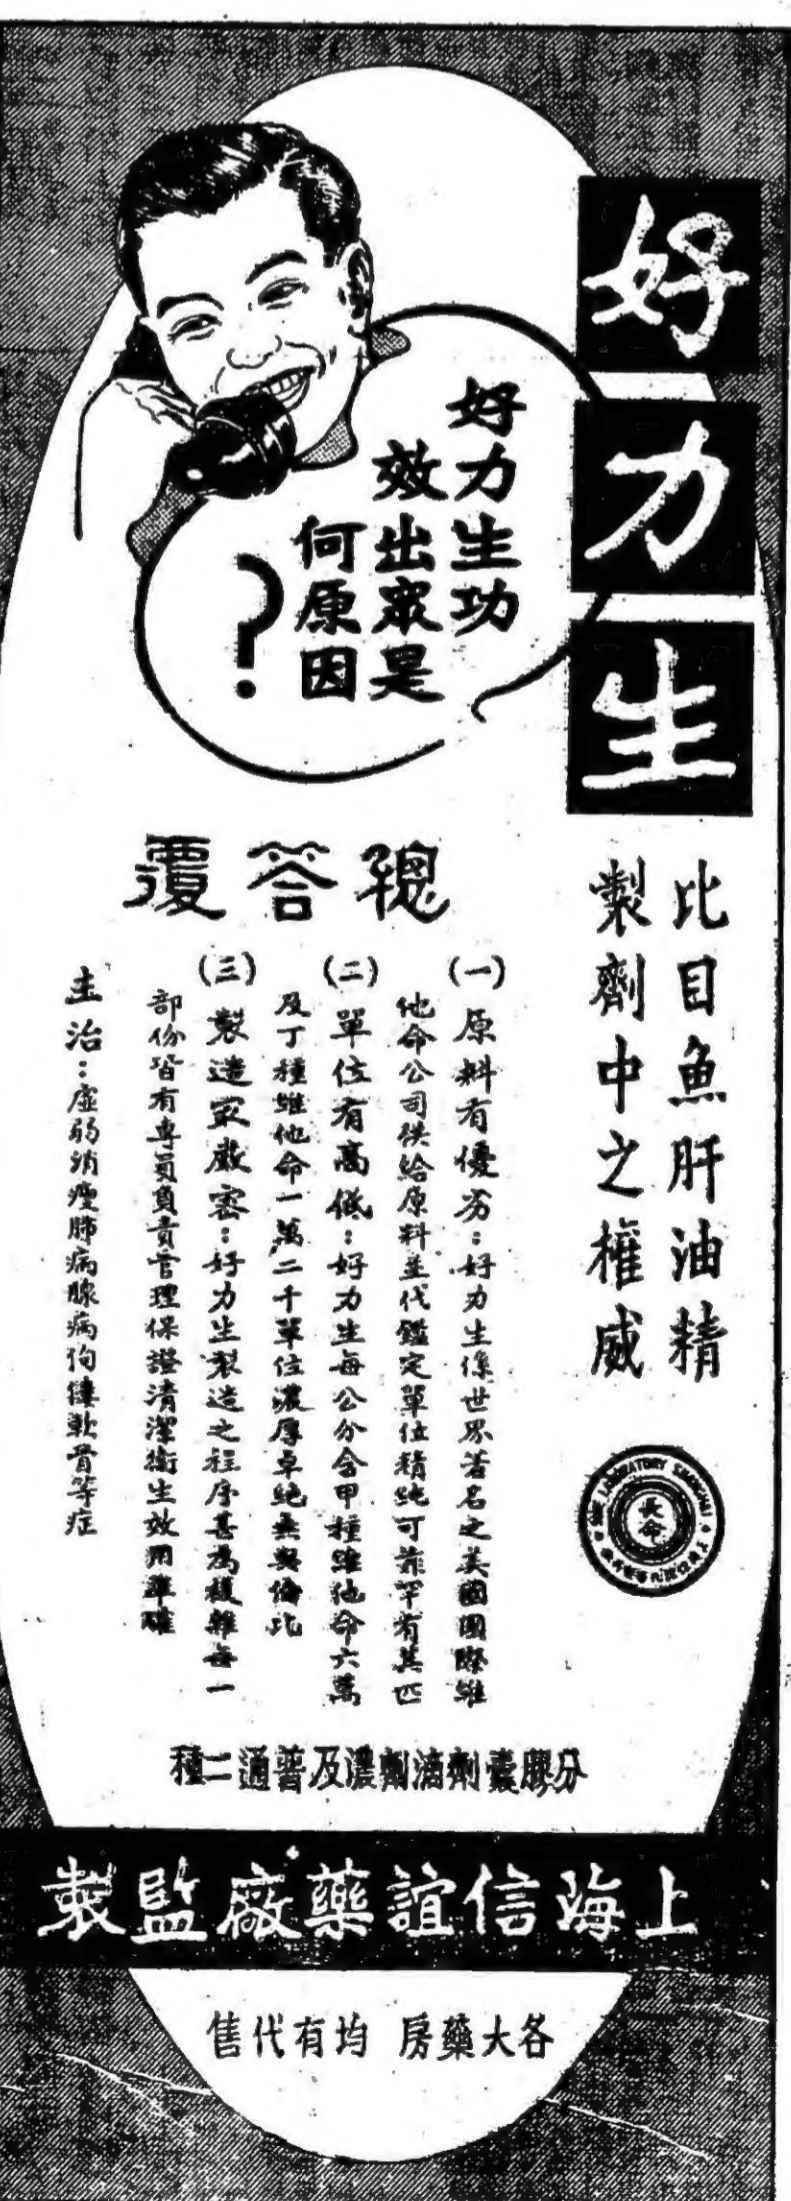 好力生
比目魚肝油精
製劑中之權威
好力生功
效出眾是
何原因
?
總答覆
(一)原料有優劣：好力生係世界著名之美國國際維
他命公司供給原料並代鑑定單位精純可靠罕有其匹
(二)單位有高低：好力生每公分含甲種維他命六萬
及丁種維他命一萬二千單位濃厚卓絕無與倫比
(三)製造家嚴密：好力生製造之程序甚為複雜每一
部份皆有專員負責管理保證清潔衛生效用準確
主治：虛弱消瘦肺病腺病佝僂軟骨等症
LABORATORY SHANGHAI
長命
分膠囊劑油劑濃及普通二種
上海信誼藥廠監製
各大藥房 均有代售